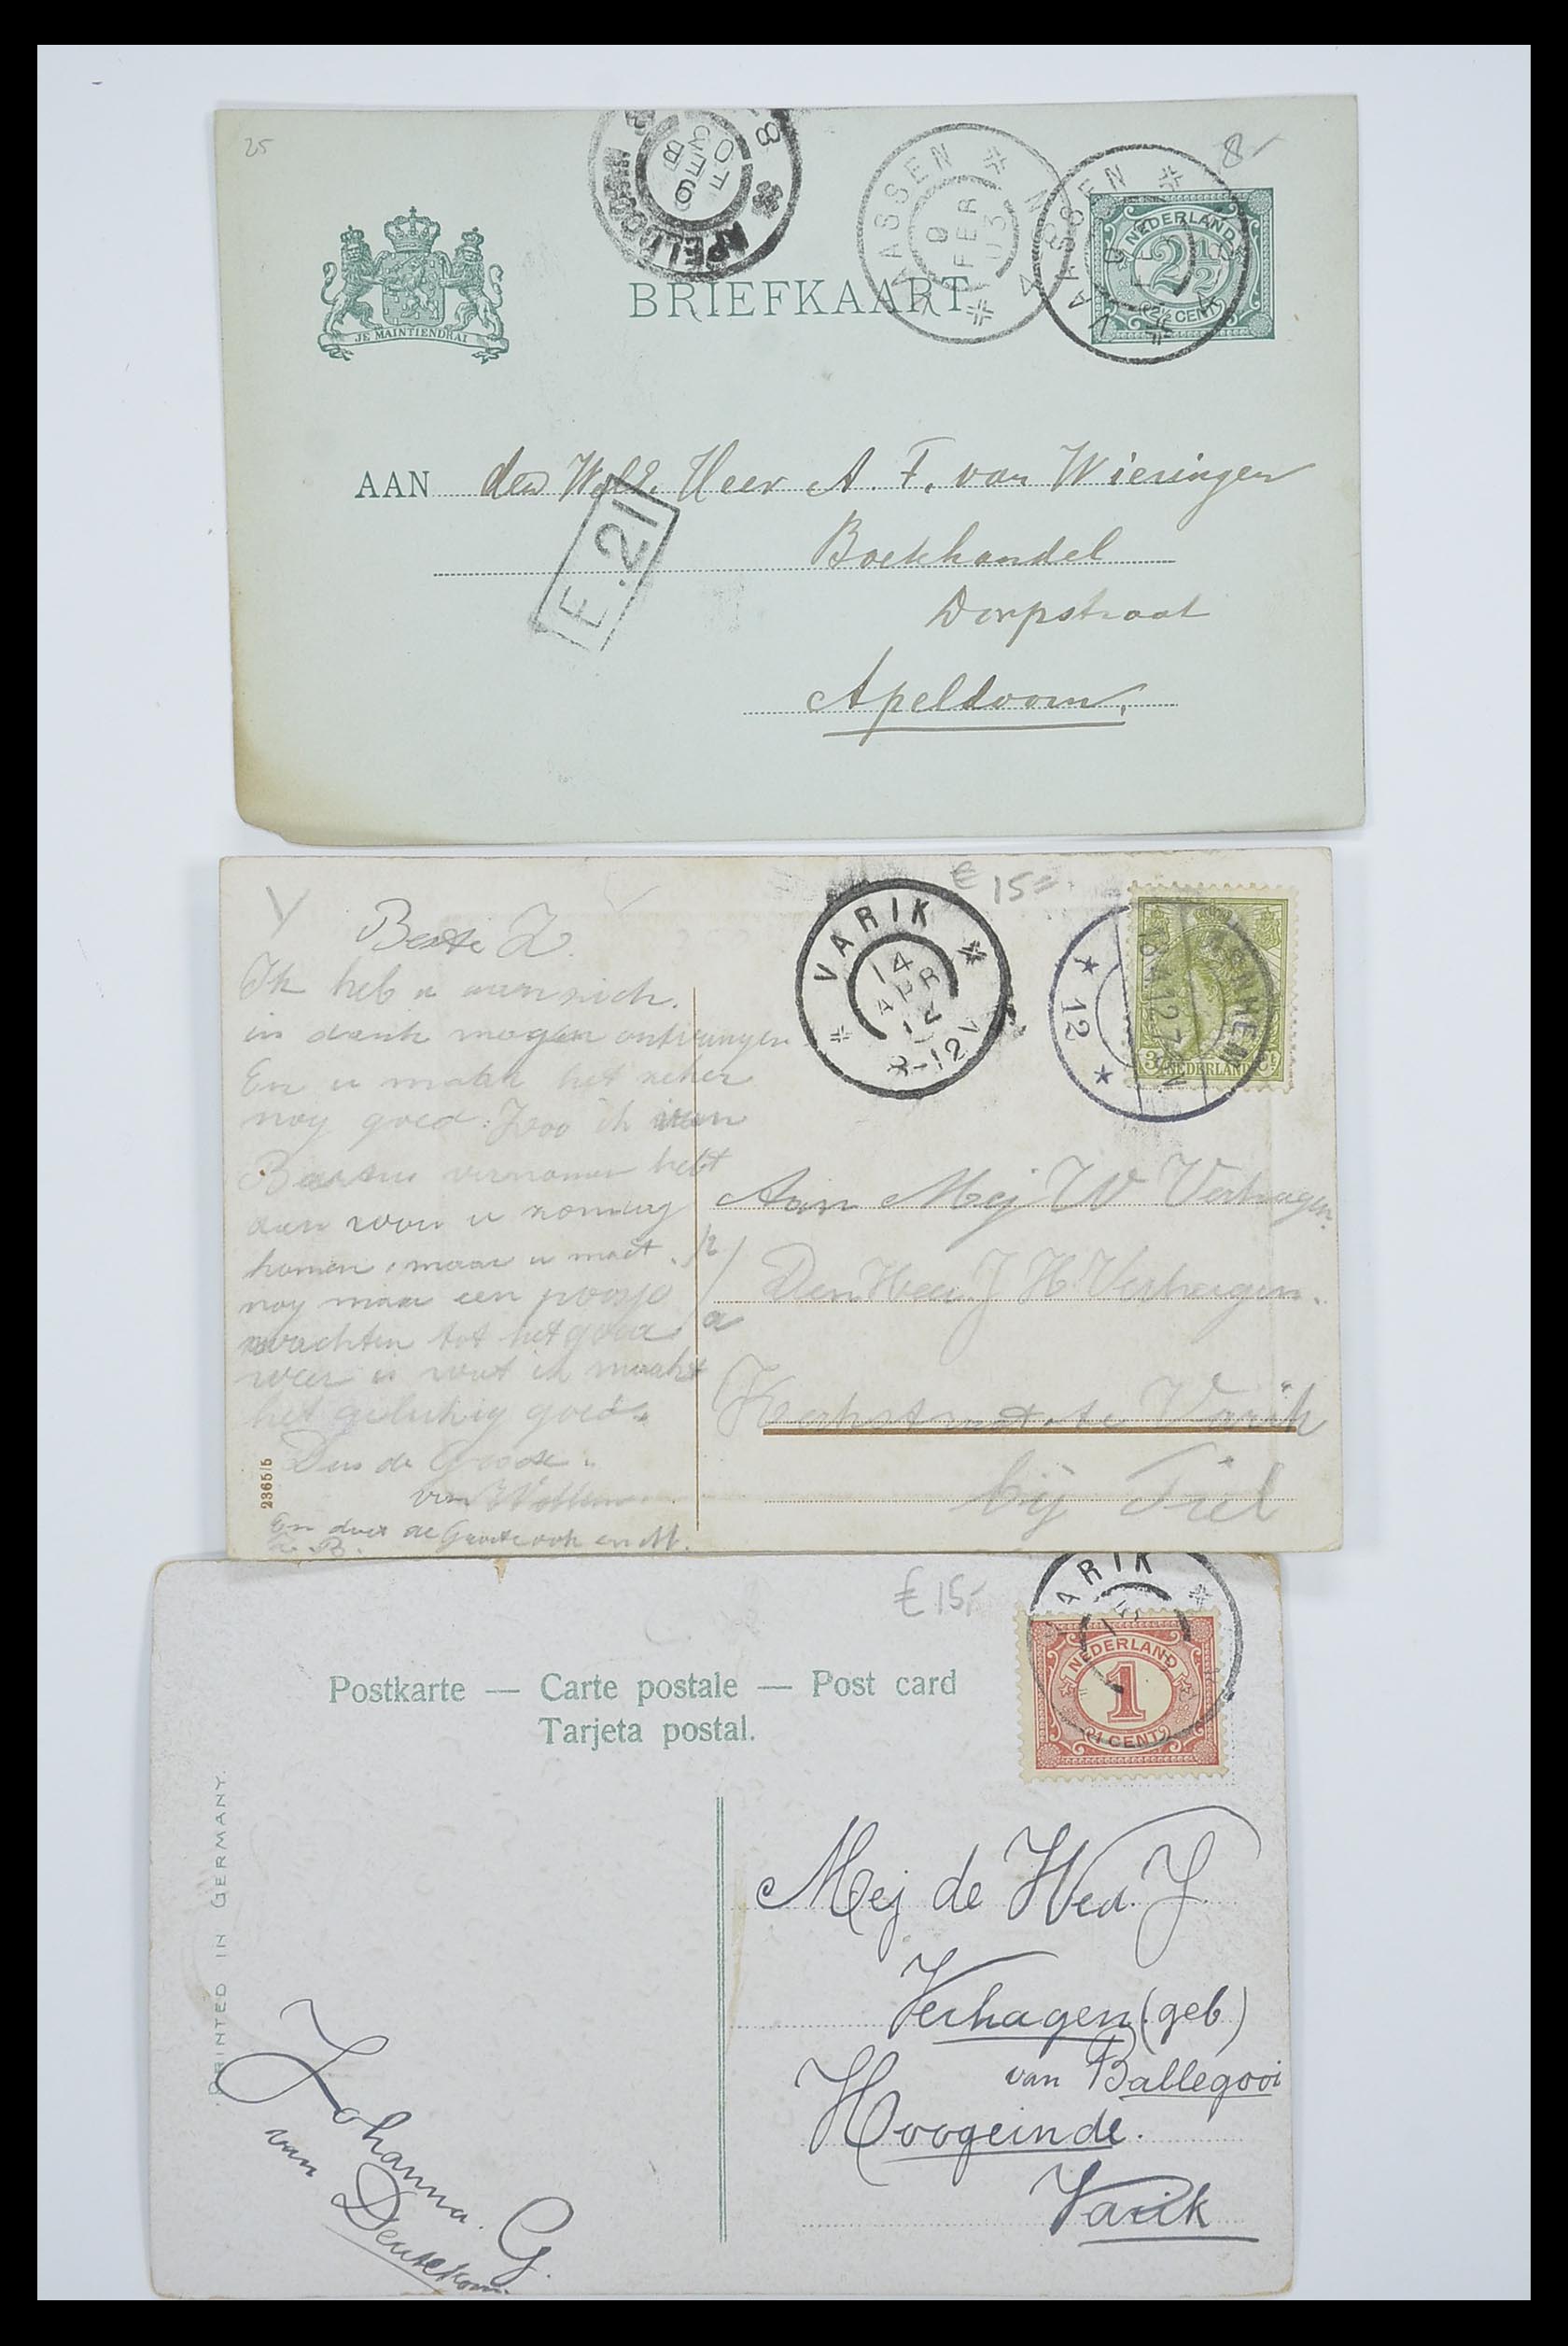 25
8-
APELDOORN
9 FEB
VAASSEN
9 FEB 03
VAASSEN
NEDERLAND
2½
2½ CENT
JE MAINTIENDRAI
BRIEFKAART
AAN den WelE. Heer A. F. van Wieringen
E.21
Boekhandel
Dorpstraat
Apeldoorn.
€ 15=
VARIK
14
APR
12
8-12V
ARNHEM
13.4.12.7-
12
NEDERLAND
Beste Z.
Ik heb u aanzich.
in dank mogen ontvangen
En u maak het zeker
nog goed. Zoo ik van
vernomen hebt
dan wou u
komen, maar u moet
nog maar een poosje
wachten tot het goed
weer is wat ik maakt
het gelukkig goed.
Dus de Groete.
van
En doet de Groete ook en M.
2365/5
Aan Mej W Verhagen.
p/a
Den Heer J H Verhagen.
Kerkstraat te Varik
bij Tiel
€ 15,-
VARIK
NEDERLAND
1
1 CENT
Postkarte — Carte postale — Post card
Tarjeta postal.
PRINTED IN GERMANY.
Mej de Wed. J.
Verhagen (geb)
van Ballegooi
Hoogeinde.
Varik
Johanna. G.
van Deutekom.